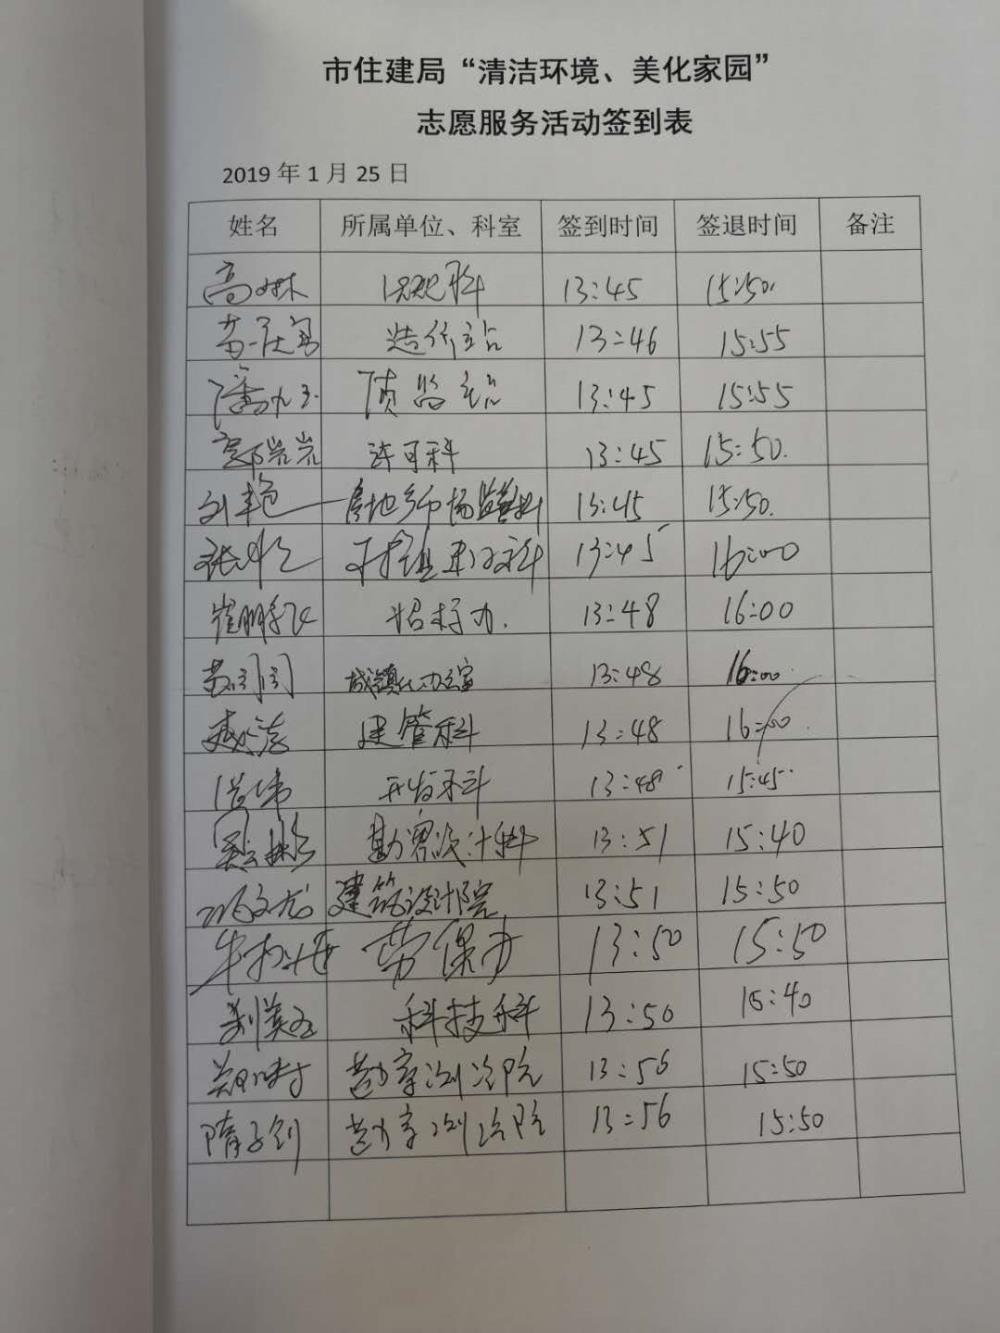 市住建局“清洁环境、美化家园”
志愿服务活动签到表
2019 年 1 月 25 日
姓名 所属单位、科室 签到时间 签退时间 备注
高 13:45 15:50
造价站 13:46 15:55
潘 质监站 13:45 15:55
郭岩岩 许可科 13:45 15:50.
刘艳 房地产市场监管科 13:45 15:50.
张 村镇建设科 13:45 16:00
崔鹏飞 招标办. 13:48 16:00
城镇化办公室 13:48 16:00
建管科 13:48 16:00
开发科 13:48 15:45
勘察设计科 13:51 15:40
冯文龙 建筑设计院 13:51 15:50
牛 劳保办 13:50 15:50
科技科 13:50 15:40
郑 勘察测绘院 13:56 15:50
隋子钊 勘察测绘院 13:56 15:50